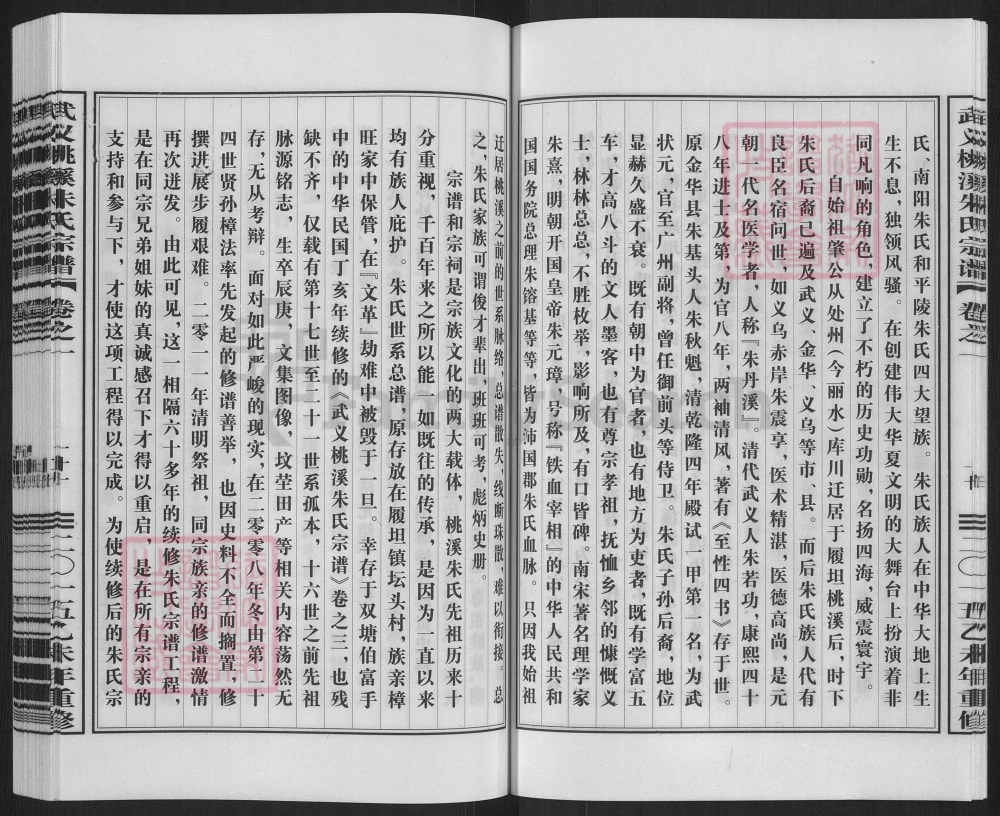 武义桃溪朱氏宗谱
卷之一
十
二〇一五乙未年重修
氏、南阳朱氏和平陵朱氏四大望族。朱氏族人在中华大地上生
生不息，独领风骚。在创建伟大华夏文明的大舞台上扮演着非
同凡响的角色，建立了不朽的历史功勋，名扬四海，威震寰宇。
自始祖肇公从处州（今丽水）库川迁居于履坦桃溪后，时下
朱氏后裔已遍及武义、金华、义乌等市、县。而后朱氏族人代有
良臣名宿问世，如义乌赤岸朱震亨，医术精湛，医德高尚，是元
朝一代名医学者，人称『朱丹溪』。清代武义人朱若功，康熙四十
八年进士及第，为官八年，两袖清风，著有《至性四书》存于世。
原金华县朱基头人朱秋魁，清乾隆四年殿试一甲第一名，为武
状元，官至广州副将，曾任御前头等侍卫。朱氏子孙后裔，地位
显赫久盛不衰。既有朝中为官者，也有地方为吏者，既有学富五
车，才高八斗的文人墨客，也有尊宗孝祖，抚恤乡邻的慷慨义
士，林林总总，不胜枚举，影响所及，有口皆碑。南宋著名理学家
朱熹，明朝开国皇帝朱元璋，号称『铁血宰相』的中华人民共和
国国务院总理朱镕基等等，皆为沛国郡朱氏血脉。只因我始祖
迁居桃溪之前的世系脉络，总谱散失，线断珠散，难以衔接。总
之，朱氏家族可谓俊才辈出，班班可考，彪炳史册。
宗谱和宗祠是宗族文化的两大载体，桃溪朱氏先祖历来十
分重视，千百年来之所以能一如既往的传承，是因为一直以来
均有族人庇护。朱氏世系总谱，原存放在履坦镇坛头村，族亲樟
旺家中保管，在『文革』劫难中被毁于一旦。幸存于双塘伯富手
中的中华民国丁亥年续修的《武义桃溪朱氏宗谱》卷之三，也残
缺不齐，仅载有第十七世至二十一世系孤本，十六世之前先祖
脉源铭志，生卒辰庚，文集图像，坟茔田产等相关内容荡然无
存，无从考辩。面对如此严峻的现实，在二零零八年冬由第二十
四世贤孙樟法率先发起的修谱善举，也因史料不全而搁置，修
撰进展步履艰难。二零一一年清明祭祖，同宗族亲的修谱激情
再次迸发。由此可见，这一相隔六十多年的续修朱氏宗谱工程，
是在同宗兄弟姐妹的真诚感召下才得以重启，是在所有宗亲的
支持和参与下，才使这项工程得以完成。为使续修后的朱氏宗
武义桃溪朱氏宗谱
卷之一
十一
二〇一五乙未年重修
FamilySearch